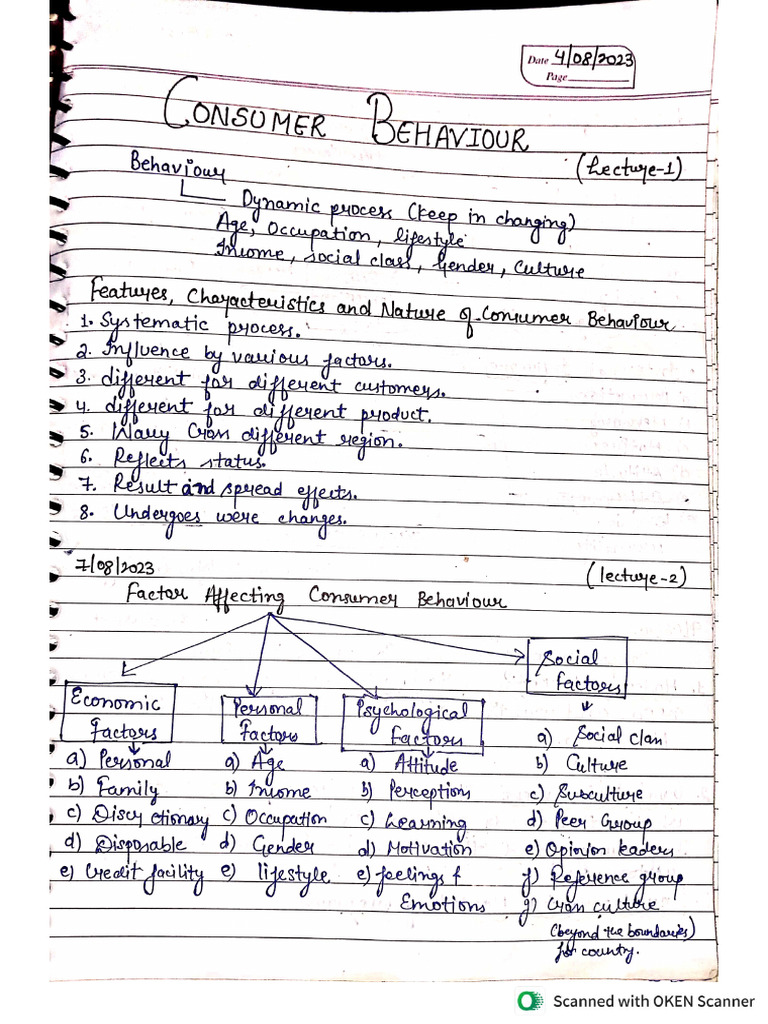 Date 4/08/2023
Page
CONSUMER BEHAVIOUR
(Lecture-1)
Behaviour
Dynamic process (Keep in changing)
Age, Occupation, lifestyle
Income, social class, Gender, Culture
Features, Characteristics and Nature of Consumer Behaviour
1. Systematic process.
2. Influence by various factors.
3. different for different customers.
4. different for different product.
5. Wary Cross different region.
6. Reflects status.
7. Result and spread effects.
8. Undergoes were changes.
7/08/2023
(lecture-2)
Factor Affecting Consumer Behaviour
Economic Factors
a) Personal
b) Family
c) Discretionary
d) Disposable
e) Credit facility
Personal Factors
a) Age
b) Income
c) Occupation
d) Gender
e) lifestyle
Psychological Factors
a) Attitude
b) Perception
c) Learning
d) Motivation
e) feelings &
Emotions
Social factors
a) Social class
b) Culture
c) Subculture
d) Peer Group
e) Opinion leaders
f) Reference group
g) Cross culture
(beyond the boundaries)
for country.
Scanned with OKEN Scanner